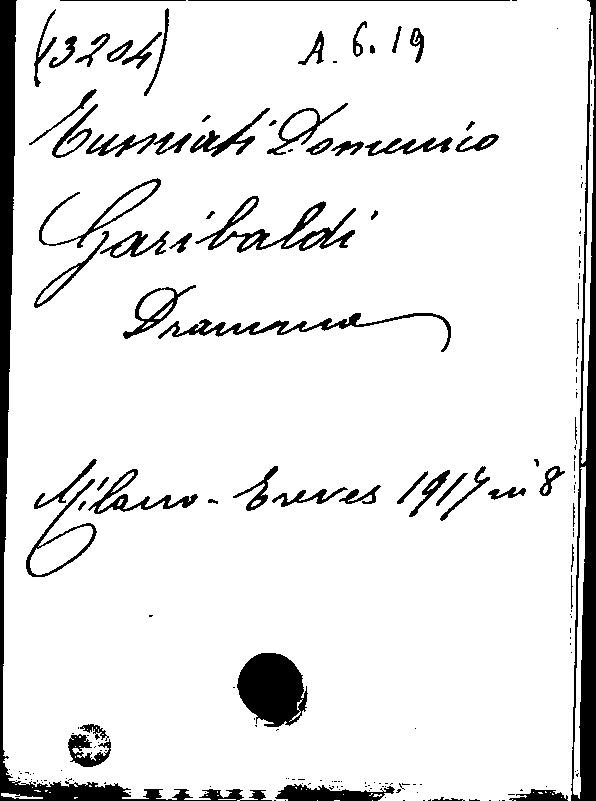 (13204) A. 6. 19
Tumiati Domenico
Garibaldi
Dramma
Milano - Treves 1917 in 8